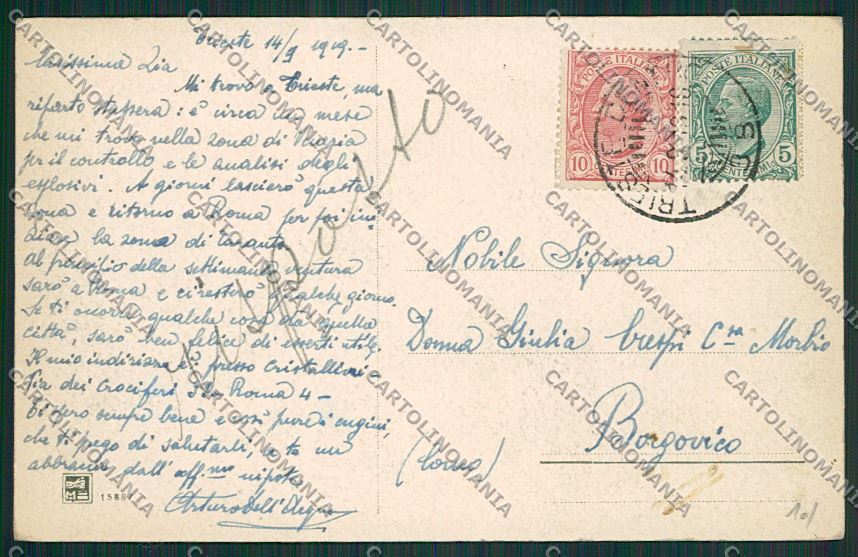 Trieste 14/9 1919.-
Carissima Zia
Mi trovo a Trieste, ma
riparto stassera: è circa un mese
che mi trovo nella zona di Venezia
per il controllo e le analisi degli
esplosivi. A giorni lascierò questa
zona e ritorno a Roma per poi ini-
ziare la zona di Taranto.
Al principio della settimana ventura
sarò a Roma e ci resterò qualche giorno.
Se ti occorre qualche cosa da quella
città, sarò ben felice di esserti utile.
Il mio indirizzo è presso Cristallini -
Via dei Crociferi Roma 4 -
Ti spero sempre bene e così pure i cugini,
che ti prego di salutarli, a te un
abbraccio dall'aff.mo nipote
Arturo Dell'Acqua
risposto
POSTE ITALIANE
10 10
POSTE ITALIANE
5 5
TRIESTE
Nobile Signora
Donna Giulia Crespi C.sa Morbio
Borgovico
(Como)
15887
10/
CARTOLINOMANIA